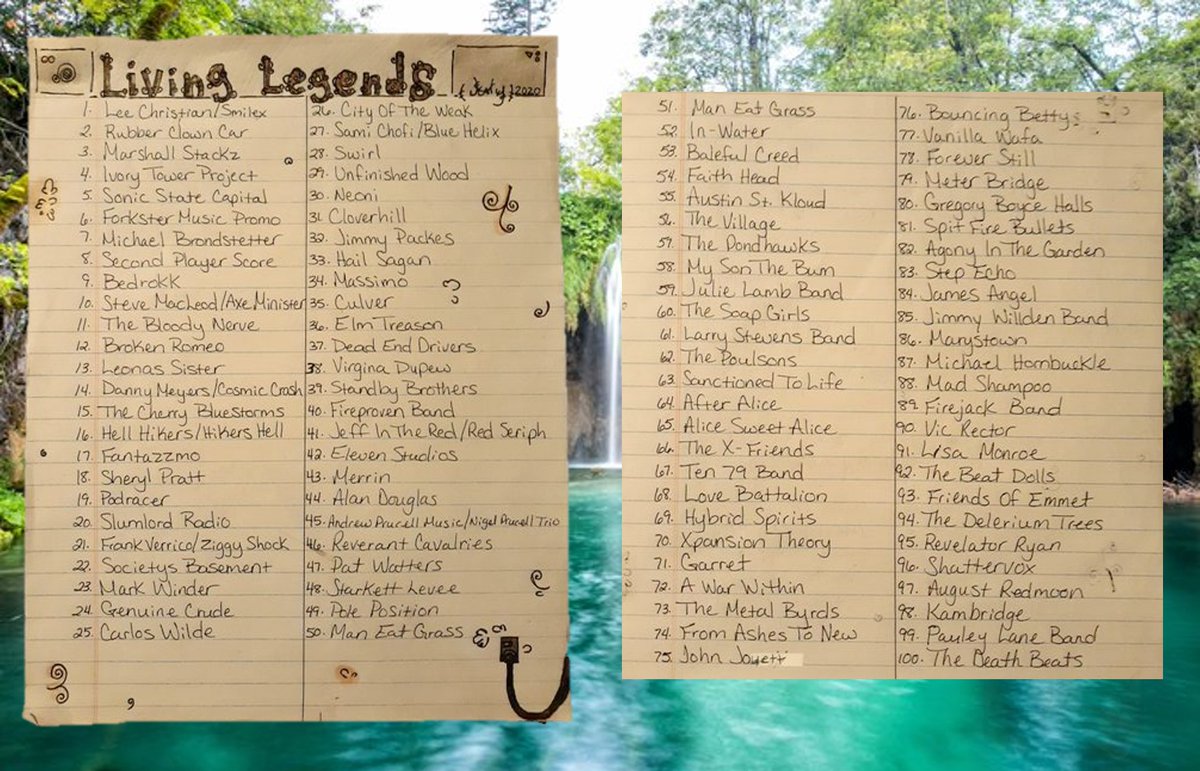 Living Legends
2020
1. Lee Christian/Smilex
2. Rubber Clown Car
3. Marshall Stackz
4. Ivory Tower Project
5. Sonic State Capital
6. Forkster Music Promo
7. Michael Brondstetter
8. Second Player Score
9. Bedrokk
10. Steve MacLeod/Axe Minister
11. The Bloody Nerve
12. Broken Romeo
13. Leonas Sister
14. Danny Meyers/Cosmic Crash
15. The Cherry Bluestorms
16. Hell Hikers/Hikers Hell
17. Fantazzmo
18. Sheryl Pratt
19. Podracer
20. Slumlord Radio
21. Frank Verrico/Ziggy Shock
22. Societys Basement
23. Mark Winder
24. Genuine Crude
25. Carlos Wilde
26. City Of The Weak
27. Sami Chofi/Blue Helix
28. Swirl
29. Unfinished Wood
30. Neoni
31. Cloverhill
32. Jimmy Packes
33. Hail Sagan
34. Massimo
35. Culver
36. Elm Treason
37. Dead End Drivers
38. Virgina Dupew
39. Standby Brothers
40. Fireproven Band
41. Jeff In The Red/Red Seriph
42. Eleven Studios
43. Merrin
44. Alan Douglas
45. Andrew Prucell Music/Nigel Prucell Trio
46. Reverant Cavalries
47. Pat Watters
48. Starkett Levee
49. Pole Position
50. Man Eat Grass
51. Man Eat Grass
52. In-Water
53. Baleful Creed
54. Faith Head
55. Austin St. Kloud
56. The Village
57. The Pondhawks
58. My Son The Bum
59. Julie Lamb Band
60. The Soap Girls
61. Larry Stevens Band
62. The Poulsons
63. Sanctioned To Life
64. After Alice
65. Alice Sweet Alice
66. The X-Friends
67. Ten 79 Band
68. Love Battalion
69. Hybrid Spirits
70. Xpansion Theory
71. Garret
72. A War Within
73. The Metal Byrds
74. From Ashes To New
75. John Jouett
76. Bouncing Betty
77. Vanilla Wafa
78. Forever Still
79. Meter Bridge
80. Gregory Boyce Halls
81. Spit Fire Bullets
82. Agony In The Garden
83. Step Echo
84. James Angel
85. Jimmy Willden Band
86. Marystown
87. Michael Hornbuckle
88. Mad Shampoo
89. Firejack Band
90. Vic Rector
91. Lisa Monroe
92. The Beat Dolls
93. Friends Of Emmet
94. The Delerium Trees
95. Revelator Ryan
96. Shattervox
97. August Redmoon
98. Kambridge
99. Pauley Lane Band
100. The Death Beats